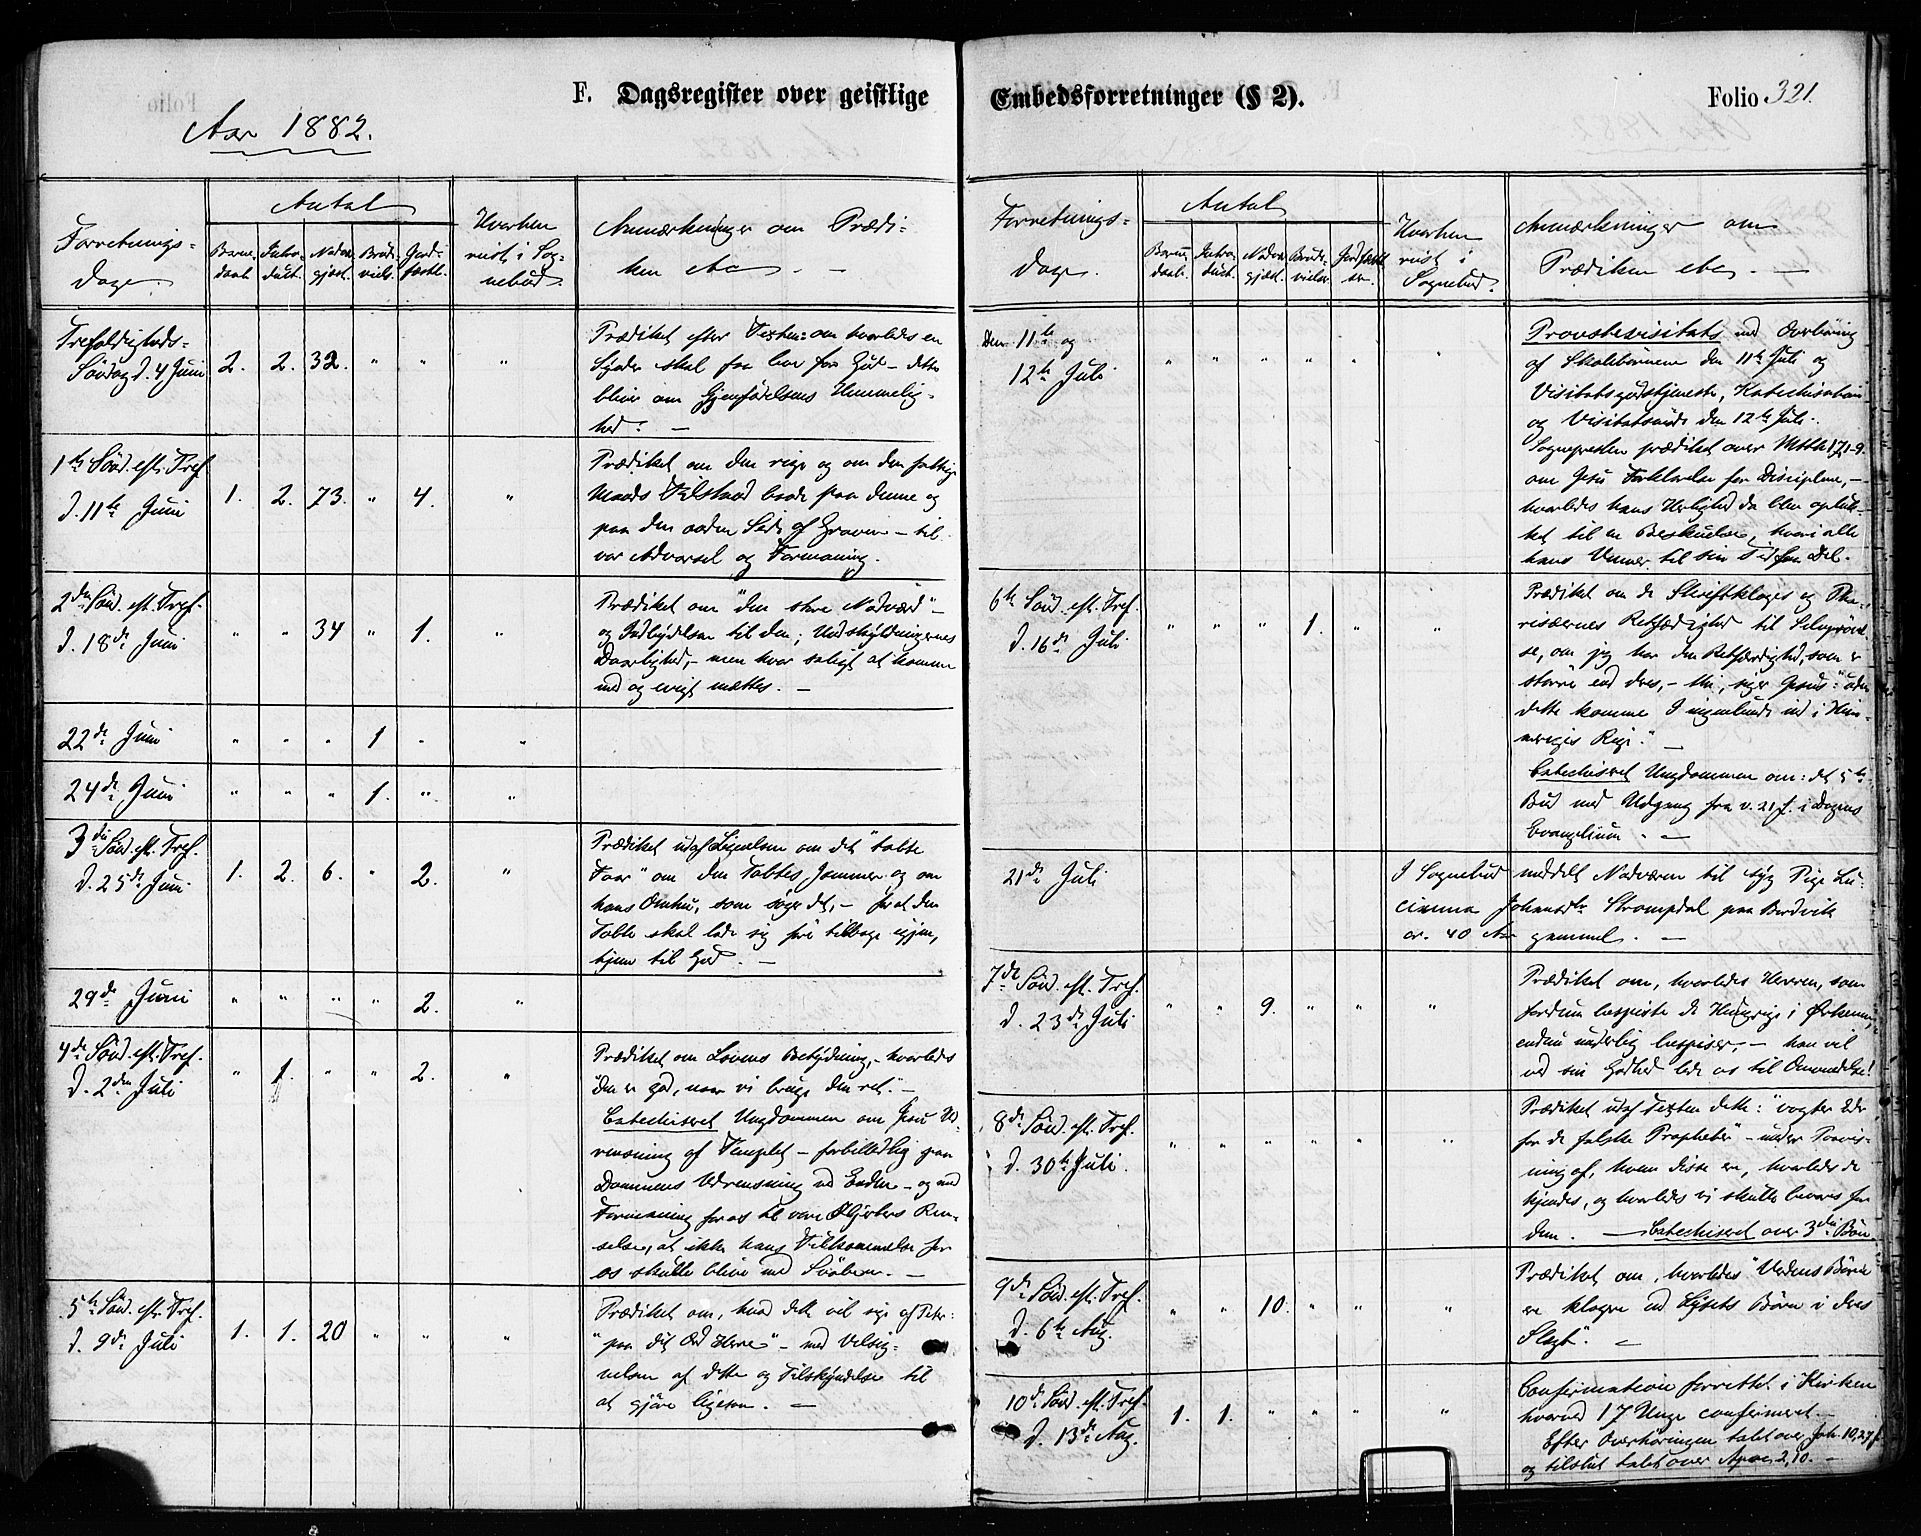 F. Dagsregister over geistlige
Aar 1882.
Forretnings-
dage.
Antal
Barne-
daab.
Intro-
duct.
Nadv.
gjæst.
Brude-
viels.
Jord-
fæstl.
Hvorhen
reist i Sog-
nebud.
Anmærkninger om Prædi-
ken etc. —
Trefoldigheds-
Søndag d. 4 Juni 2. 2. 32. " " "
Prædiket efter Texten: om hvorledes en
Synder skal faa leve for Gud – dette
bliver om Gjenfødelsens Hemmelig-
hed. —
1ste Sønd. eft. Tref.
d. 11te Juni 1. 2. 73. " 4. "
Prædiket om den rige og om den fattige
Mands Tilstand baade paa denne og
paa den anden Side af Graven – til
vor Advarsel og Formaning.
2den Sønd. eft. Tref.
d. 18de Juni " " 34 " 1. "
Prædiket om "den store Nadverd" –
og Indbydelsen til den; Undskyldningernes
Daarlighed, – men hvor saligt at komme
med og evigt mættes. —
22de Juni " " " 1 " "
24de Juni " " " 1. " "
3die Sønd. eft. Tref.
d. 25de Juni 1. 2. 6. " 2. "
Prædiket udaf Lignelsen om det "tabte
Faar" om den Tabtes Jammer og om
hans Omhu, som søger det, – for at den
Tabte skal lade sig føre tilbage igjen,
hjem til Gud. —
29de Juni " " " " 2. "
4de Sønd. eft. Tref.
d. 2den Juli " 1. " " 2. "
Prædiket om Lovens Betydning, – hvorledes
"den er god, naar vi bruge den ret." –
Catechiseret Ungdommen om Jesu Ud-
rensning af Templet – forbilledlig paa
Dommens Udrensning ved Enden – og med
Formaning for os til vore Hjerters Ren-
selse, at ikke hans Tilkommelse for
os skulle blive med Svøben. —
5te Sønd. eft. Tref.
d. 9de Juli 1. 1. 20 " " "
Prædiket om, hvad dette vil sige af Peter:
"paa dit Ord Herre" – med Velsig-
nelsen af dette og Tilskyndelse til
at gjøre ligesom. —
Embedsforretninger (§ 2).
Folio 321.
Forretnings-
dage.
Antal
Barne
daab.
Intro
duct.
Nadv.
gjæst.
Brude-
vielser.
Jordfæstel
ser.
Hvorhen
reist i
Sognebud.
Anmærkninger om
Prædiken etc. —
Den 11te og
12te Juli " " " " " "
Provstevisitats med Overhøring
af Skolebørnene den 11te Juli og
Visitatsgudstjeneste, Katechisation
og Visitatsmøde den 12te Juli.
Sognepresten prædiket over Mtth 17,1-9.
om Jesu Forklarelse for Disciplene, –
hvorledes hans Herlighed da blev opluk-
ket til en Beskuelse, hvori alle
hans Venner til sin Tid faa Del.
6te Sønd. eft. Tref.
d. 16de Juli " " " 1. " "
Prædiket om de Skriftkloges og Pha-
risæernes Retfærdighed til Selvprøvel-
se, om jeg har den Retfærdighed, som er
større end deres, – thi, siger Jesus: "uden
dette komme I ingenlunde ind i Him-
meriges Rige." —
Catechiseret Ungdommen om: det 5te
Bud med Udgang fra v. 21 f. i Dagens
Evangelium. —
21de Juli
I Sognebud meddelt Nadveren til syg Pige Lu-
cianna Johansdtr Strompdal paa Bordvik
cr. 40 Aar gammel. —
7de Sønd. eft. Tref.
d. 23de Juli " " 9. " " "
Prædiket om, hvorledes Herren, som
fordum bespiste de Hungrige i Ørkenen,
endnu underlig bespiser, – han vil
ved sin Godhed lede os til Omvendelse!
8de Sønd. eft. Tref.
d. 30te Juli. " " " " " "
Prædiket udaf Texten dette: "vogter Eder
for de falske Propheter" – under Paavis-
ning af, hvem disse ere, hvorledes de
kjendes, og hvorledes vi skulle bevares for
dem. — Catechiseret over 3die Bøn.
9de Sønd. eft. Tref.
d. 6te Aug. " " 10. " " "
Prædiket om, hvorledes "Verdens Børn
ere klogere end Lysets Børn i deres
Slægt". —
10de Sønd. eft. Tref.
d. 13de Aug. 1. 1. " " " "
Confirmation forrettet i Kirken
hvorved 17 Unge confirmeret. –
Efter Overhøringen talet over Joh. 10,27 f.
og tilslut talet over Apoc. 2,10. –